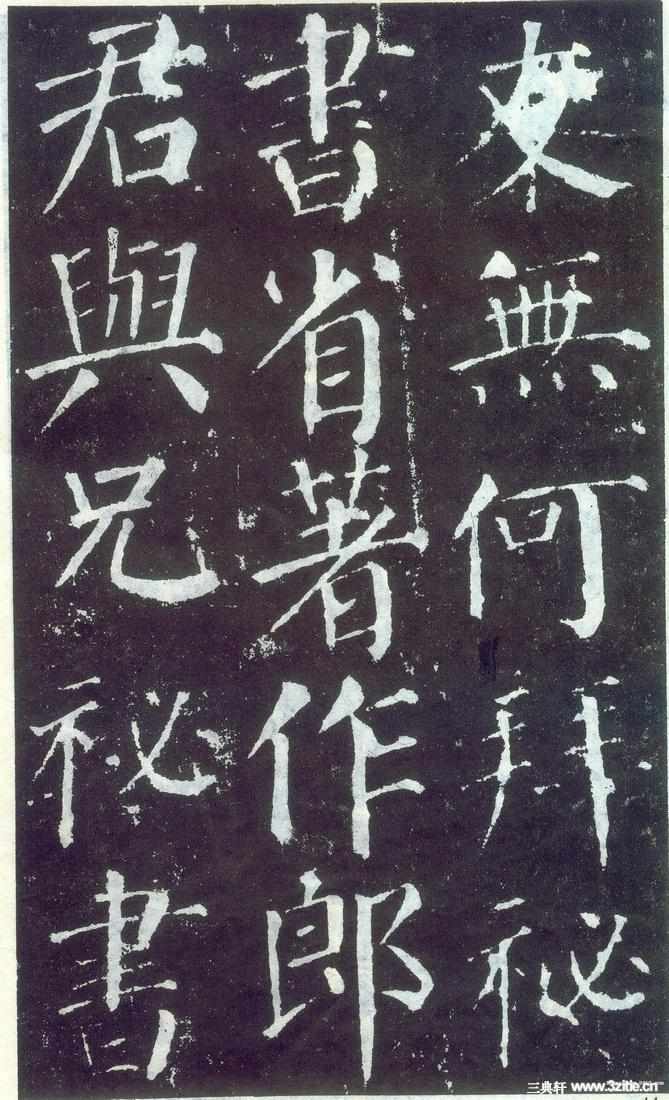 友無何拜祕
書省著作郎
君與兄祕書
三典轩 www.3zitie.cn